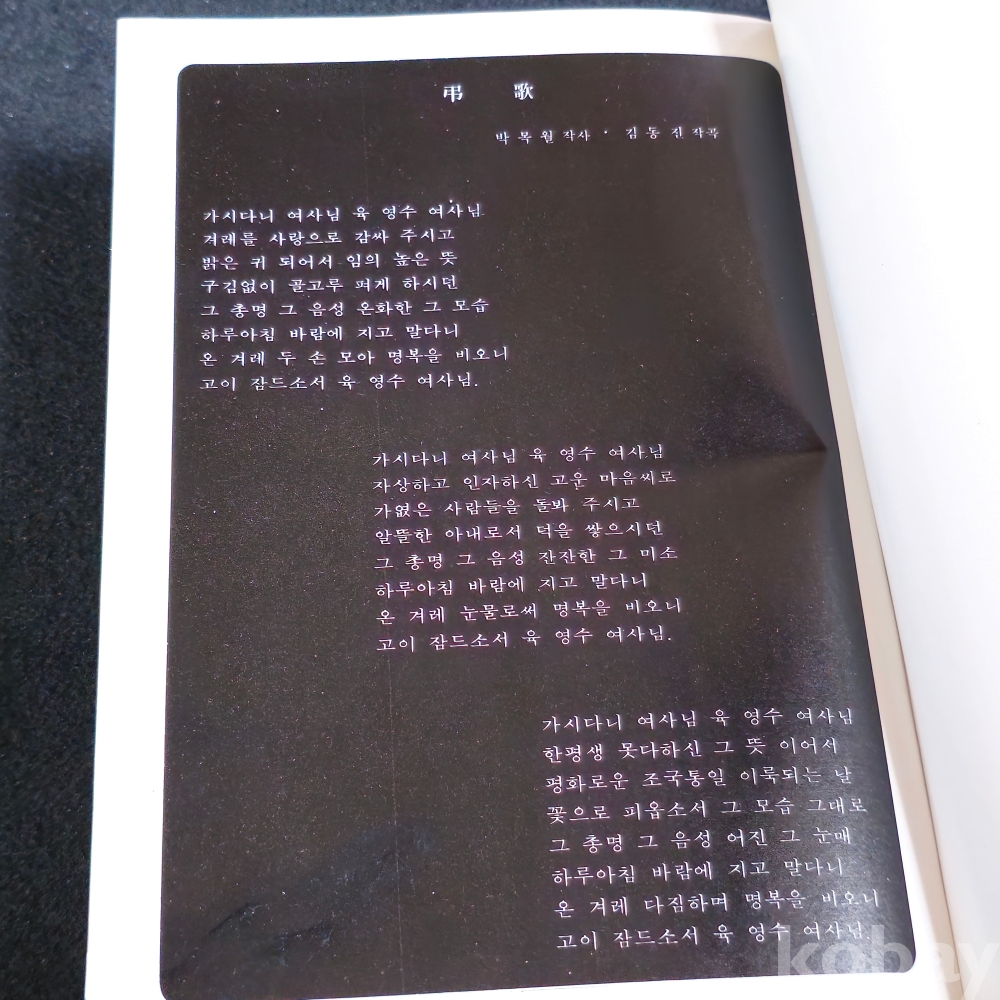 弔 歌
박목월 작사 · 김동진 작곡
가시다니 여사님 육 영수 여사님
겨레를 사랑으로 감싸 주시고
밝은 귀 되어서 임의 높은 뜻
구김없이 골고루 펴게 하시던
그 총명 그 음성 온화한 그 모습
하루아침 바람에 지고 말다니
온 겨레 두 손 모아 명복을 비오니
고이 잠드소서 육 영수 여사님.
가시다니 여사님 육 영수 여사님
자상하고 인자하신 고운 마음씨로
가엾은 사람들을 돌봐 주시고
알뜰한 아내로서 덕을 쌓으시던
그 총명 그 음성 잔잔한 그 미소
하루아침 바람에 지고 말다니
온 겨레 눈물로써 명복을 비오니
고이 잠드소서 육 영수 여사님.
가시다니 여사님 육 영수 여사님
한평생 못다하신 그 뜻 이어서
평화로운 조국통일 이룩되는 날
꽃으로 피옵소서 그 모습 그대로
그 총명 그 음성 어진 그 눈매
하루아침 바람에 지고 말다니
온 겨레 다짐하며 명복을 비오니
고이 잠드소서 육 영수 여사님.
kobay